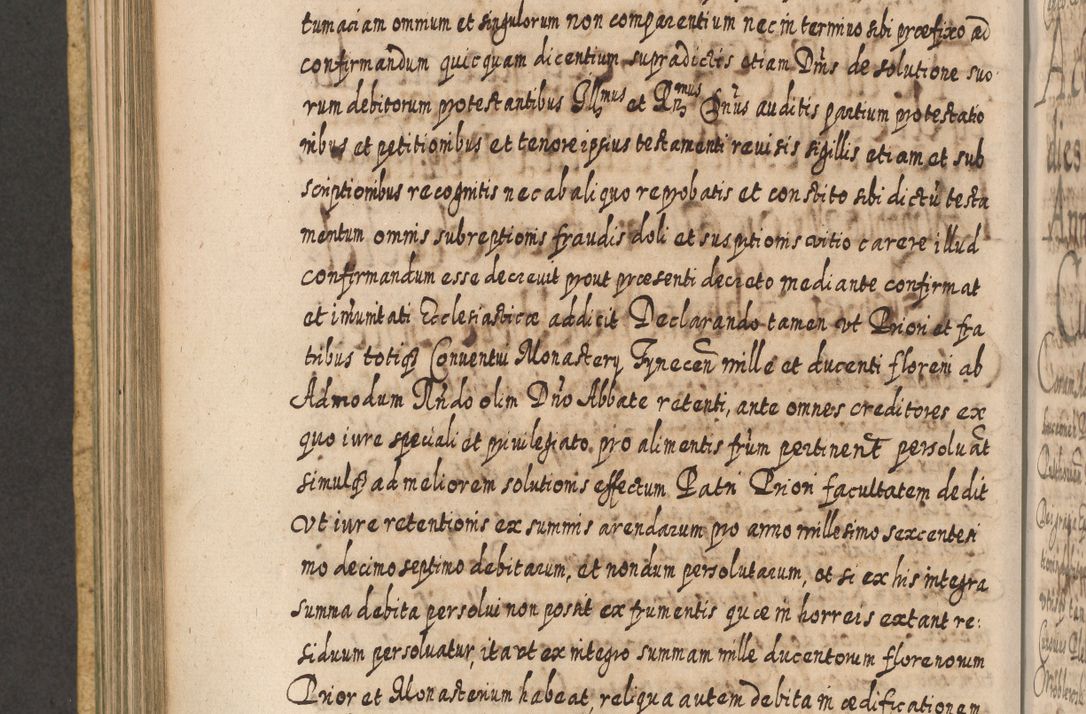 tumaciam omnium et singulorum non comparentium nec in termino sibi præfixo ad
confirmandum quicquam dicentium supradictis etiam Dnis de solutione suo
rum debitorum protestantibus Illmus et Rndmus Dnus auditis partium protestatio
nibus et petitionibus et tenore ipsius testamenti revisis sigillis etiam et sub
scriptionibus recognitis nec ab aliquo reprobatis et constito sibi dictū testa
mentum omnis subreptionis fraudis doli et suspitionis vitio carere illud
confirmandum esse decrevit prout præsenti decreto mediante confirmat
et imunitati Ecclesiasticæ addicit Declarando tamen ut Priori et fra
tribus totiq3 Conventui Monastery Tynecen mille et ducenti floreni ab
Admodum Rndo olim Dno Abbate retenti, ante omnes creditores ex
quo iure speciali et privilegiato, pro alimentis frūm pertinent persoluāt
simulq3 ad meliorem solutionis effectum Patri Priori facultatem dedit
ut iure retentionis ex summis arendarum pro anno millesimo sexcentesi
mo decimo septimo debitarum, et nondum persolutarum, et si ex his integra
summa debita persolui non possit ex frumentis quæ in horreis extant re:
siduum persoluatur, ita ut ex integro summam mille ducentorum florenorum
Prior et Monasterium habeat, reliqua autem debita in ædificationem